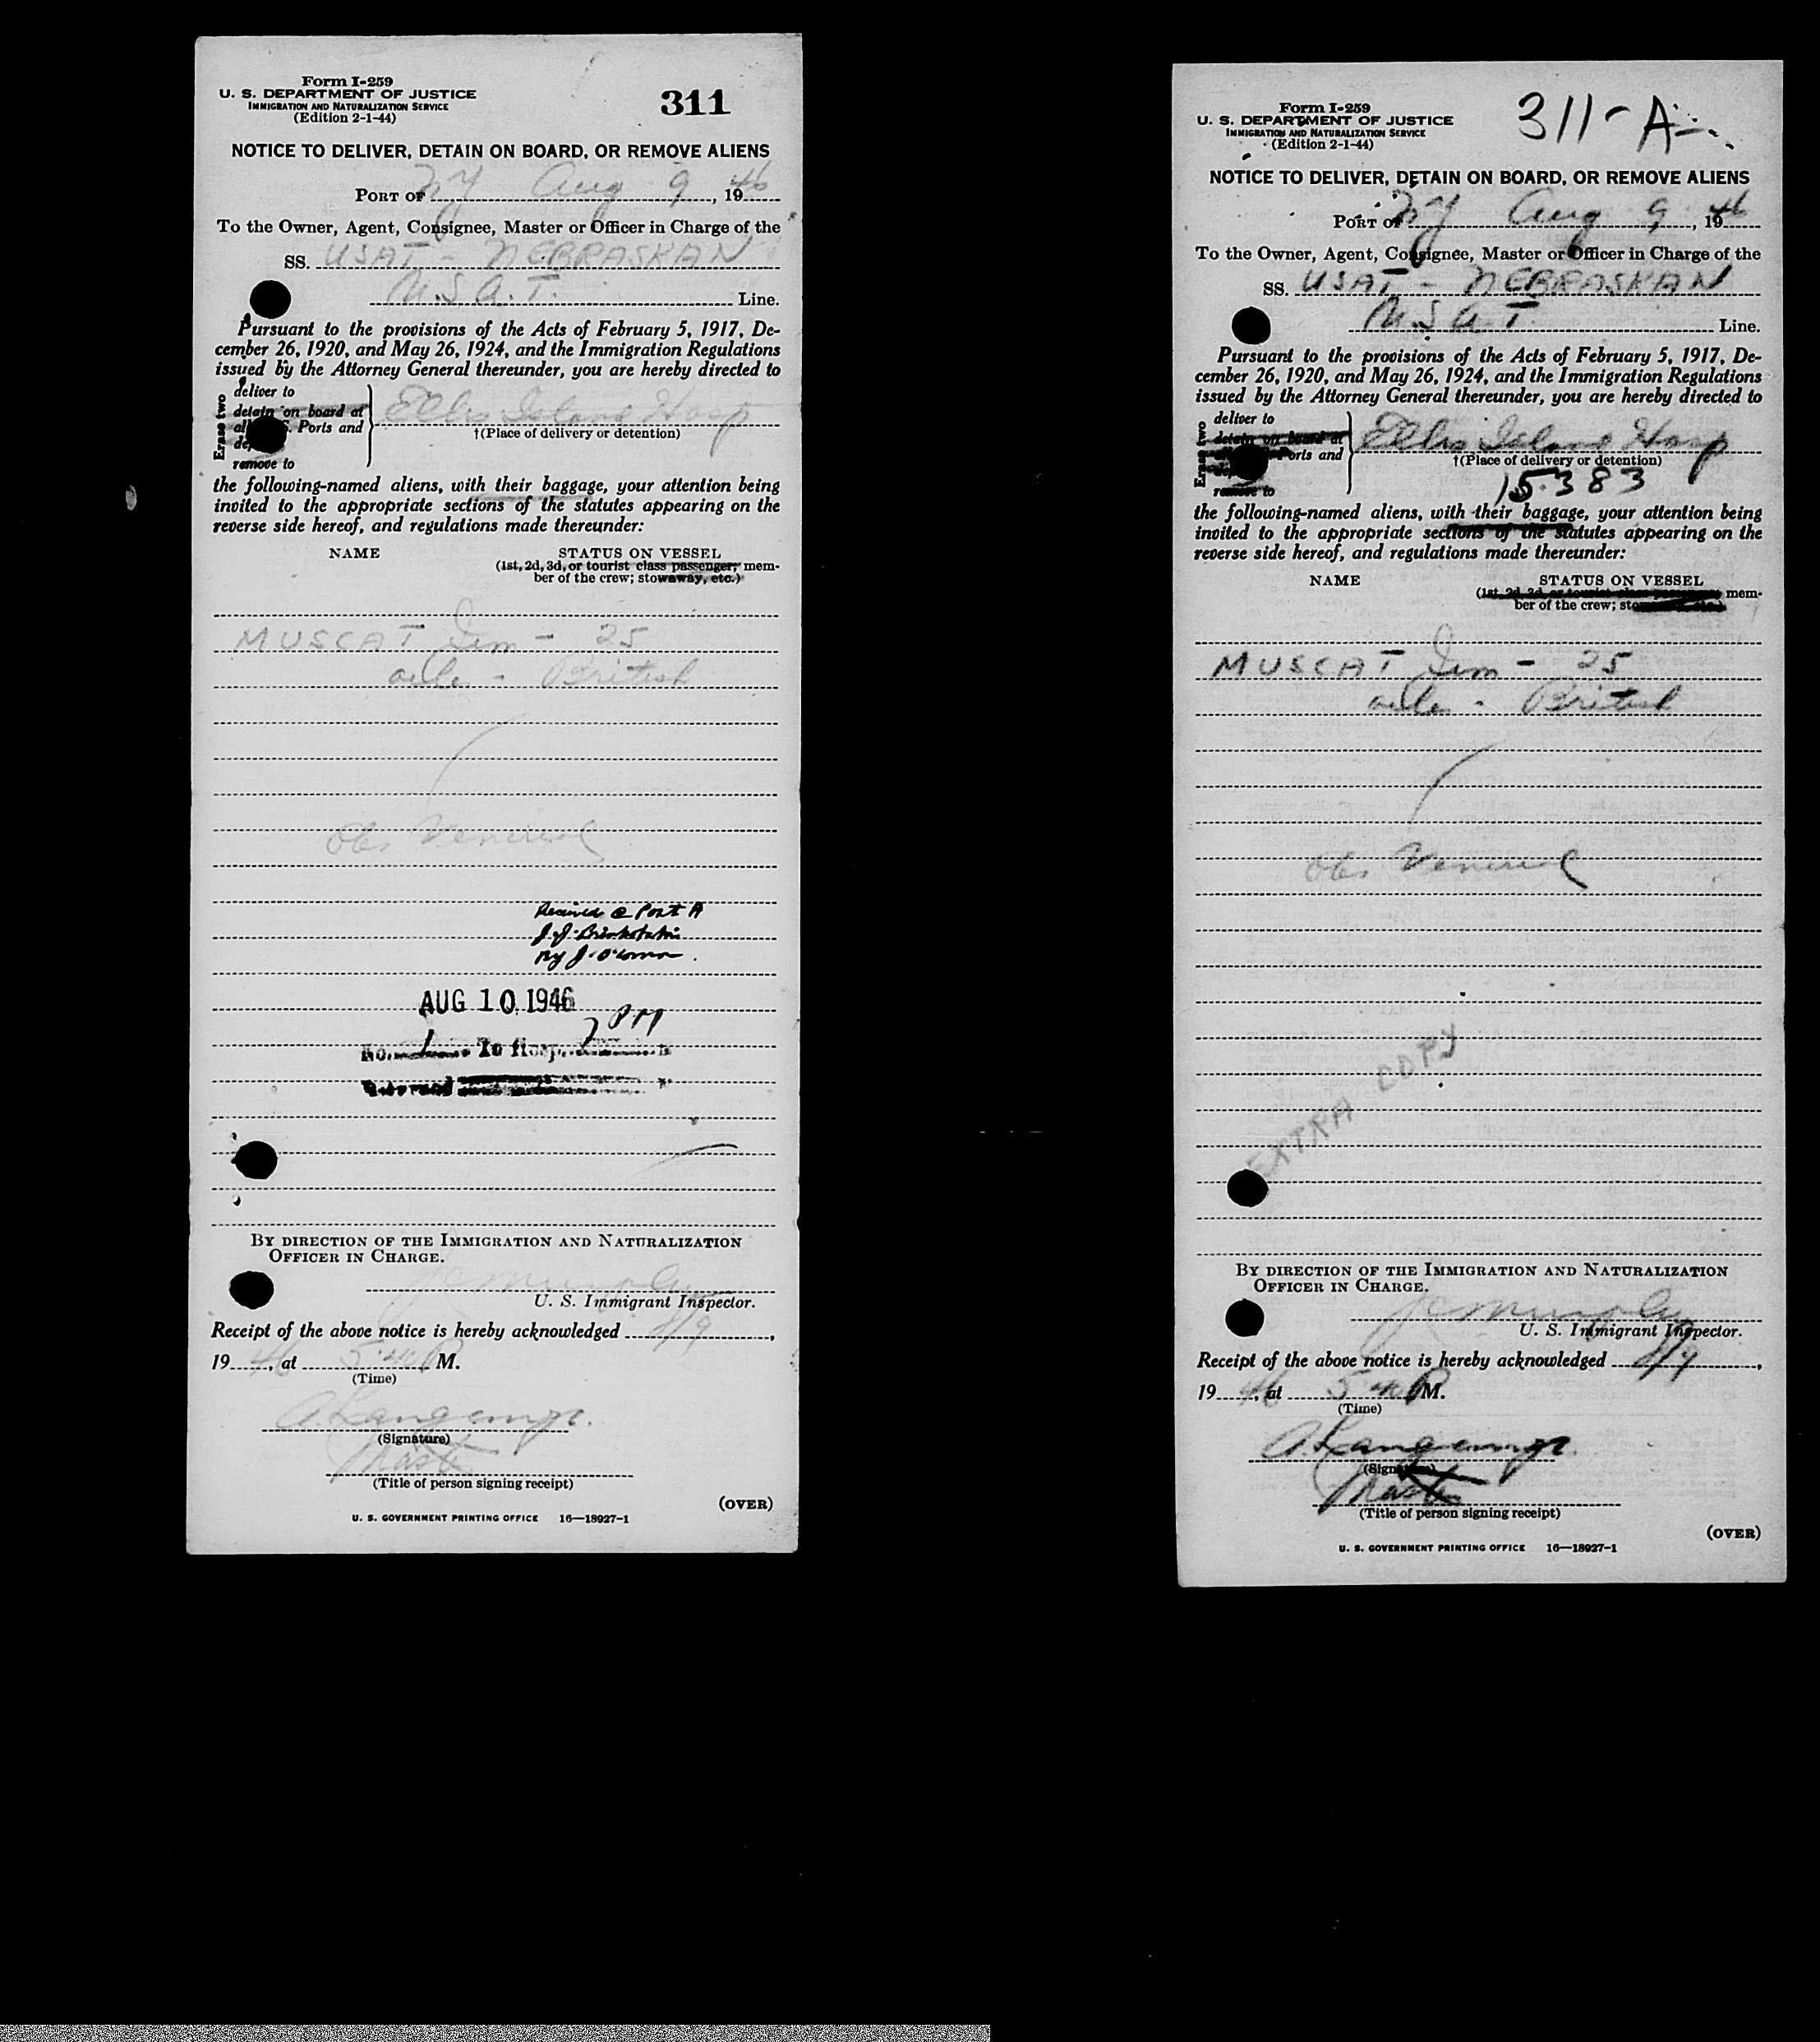 Form I-259
U. S. DEPARTMENT OF JUSTICE
IMMIGRATION AND NATURALIZATION SERVICE
(Edition 2-1-44)
311
NOTICE TO DELIVER, DETAIN ON BOARD, OR REMOVE ALIENS
PORT OF NY Aug 9, 1946
To the Owner, Agent, Consignee, Master or Officer in Charge of the
SS. USAT - NEBRASKAN
U.S.A.T. Line.
Pursuant to the provisions of the Acts of February 5, 1917, De-
cember 26, 1920, and May 26, 1924, and the Immigration Regulations
issued by the Attorney General thereunder, you are hereby directed to
Erase two
deliver to
detain on board at
Ports and
remove to
Ellis Island Hosp
†(Place of delivery or detention)
the following-named aliens, with their baggage, your attention being
invited to the appropriate sections of the statutes appearing on the
reverse side hereof, and regulations made thereunder:
NAME STATUS ON VESSEL
(1st, 2d, 3d, or tourist class passenger; mem-
ber of the crew; stowaway, etc.)
MUSCAT - 25
British
Venereal
Received @ Post A
By J.
AUG 10 1946
7 PM
No. 1 To Hosp.
Returned
BY DIRECTION OF THE IMMIGRATION AND NATURALIZATION
OFFICER IN CHARGE.
U. S. Immigrant Inspector.
Receipt of the above notice is hereby acknowledged 8/9,
1946, at 5:40 P M.
(Time)
(Signature)
Master
(Title of person signing receipt)
(OVER)
U. S. GOVERNMENT PRINTING OFFICE 16—18927-1
Form I-259
U. S. DEPARTMENT OF JUSTICE
IMMIGRATION AND NATURALIZATION SERVICE
(Edition 2-1-44)
311-A
NOTICE TO DELIVER, DETAIN ON BOARD, OR REMOVE ALIENS
PORT OF NY Aug 9, 1946
To the Owner, Agent, Consignee, Master or Officer in Charge of the
SS. USAT - NEBRASKAN
U.S.A.T. Line.
Pursuant to the provisions of the Acts of February 5, 1917, De-
cember 26, 1920, and May 26, 1924, and the Immigration Regulations
issued by the Attorney General thereunder, you are hereby directed to
Erase two
deliver to
detain on board at
Ports and
remove to
Ellis Island Hosp
†(Place of delivery or detention)
15383
the following-named aliens, with their baggage, your attention being
invited to the appropriate sections of the statutes appearing on the
reverse side hereof, and regulations made thereunder:
NAME STATUS ON VESSEL
(1st, 2d, 3d, or tourist class passenger; mem-
ber of the crew;
MUSCAT - 25
British
Venereal
EXTRA COPY
BY DIRECTION OF THE IMMIGRATION AND NATURALIZATION
OFFICER IN CHARGE.
U. S. Immigrant Inspector.
Receipt of the above notice is hereby acknowledged 8/9,
1946, at 5:40 P M.
(Time)
(Signature)
Master
(Title of person signing receipt)
(OVER)
U. S. GOVERNMENT PRINTING OFFICE 16—18927-1